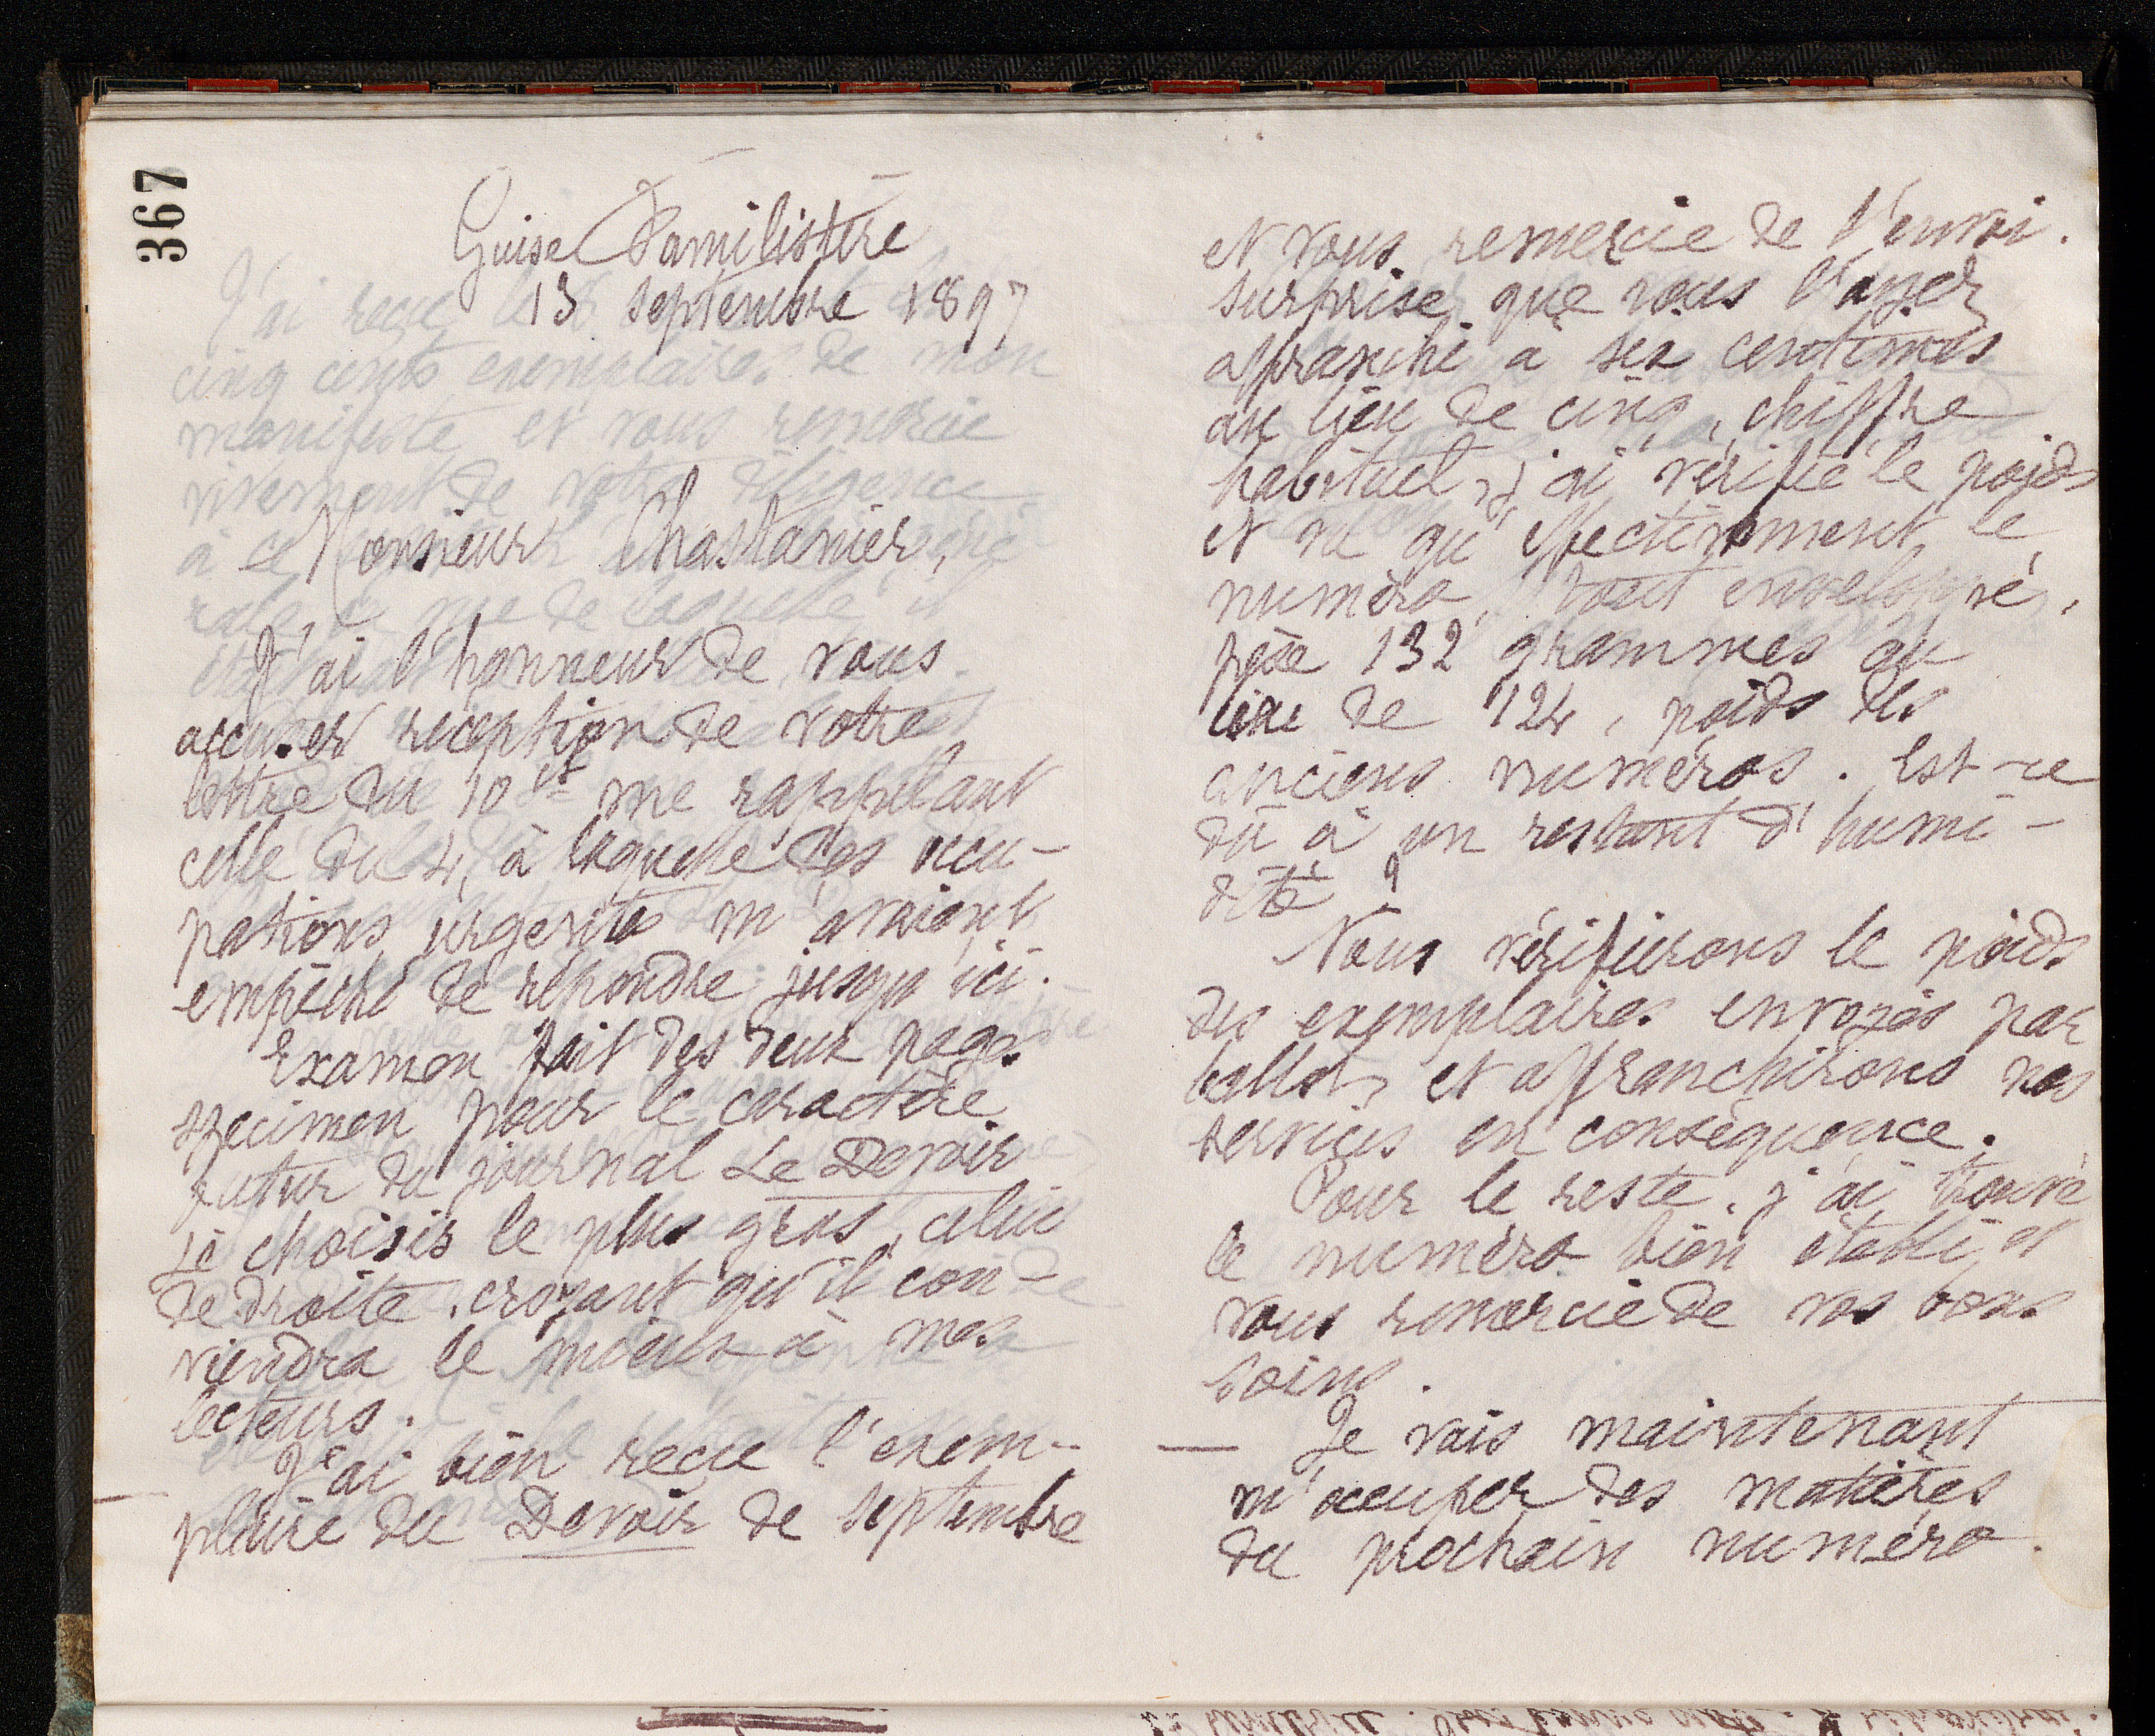 367
Guise Familistère
13 septembre 1897
Monsieur Chastanier,
J'ai l'honneur de vous
accuser réception de votre
lettre du 10 ct me rappelant
celle du 4, à laquelle des occu-
pations urgentes m'avaient
empêché de répondre jusqu'ici.
Examen fait des deux pages
specimen pour le caractère
futur du journal Le Devoir
je choisis le plus gros, celui
de droite, croyant qu'il con-
viendra le mieux à mes
lecteurs.
J'ai bien reçu l'exem-
plaire du Devoir de septembre
et vous remercie de l'envoi.
Surprise que vous l'ayez
affranchi à six centimes
au lieu de cinq, chiffre
habituel, j'ai vérifié le poids
et vu qu'effectivement le
numéro, tout enveloppé,
pèse 132 grammes au
lieu de 124, poids des
anciens numéros. Est-ce
dû à un restant d'humi-
dité ?
Nous vérifierons le poids
des exemplaires envoyés par
ballot, et affranchirons nos
services en conséquence.
Pour le reste, j'ai trouvé
le numéro bien établi et
vous remercie de vos bons
soins.
— Je vais maintenant
m'occuper des matières
du prochain numéro.